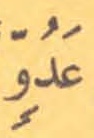 عَدُوٍّ